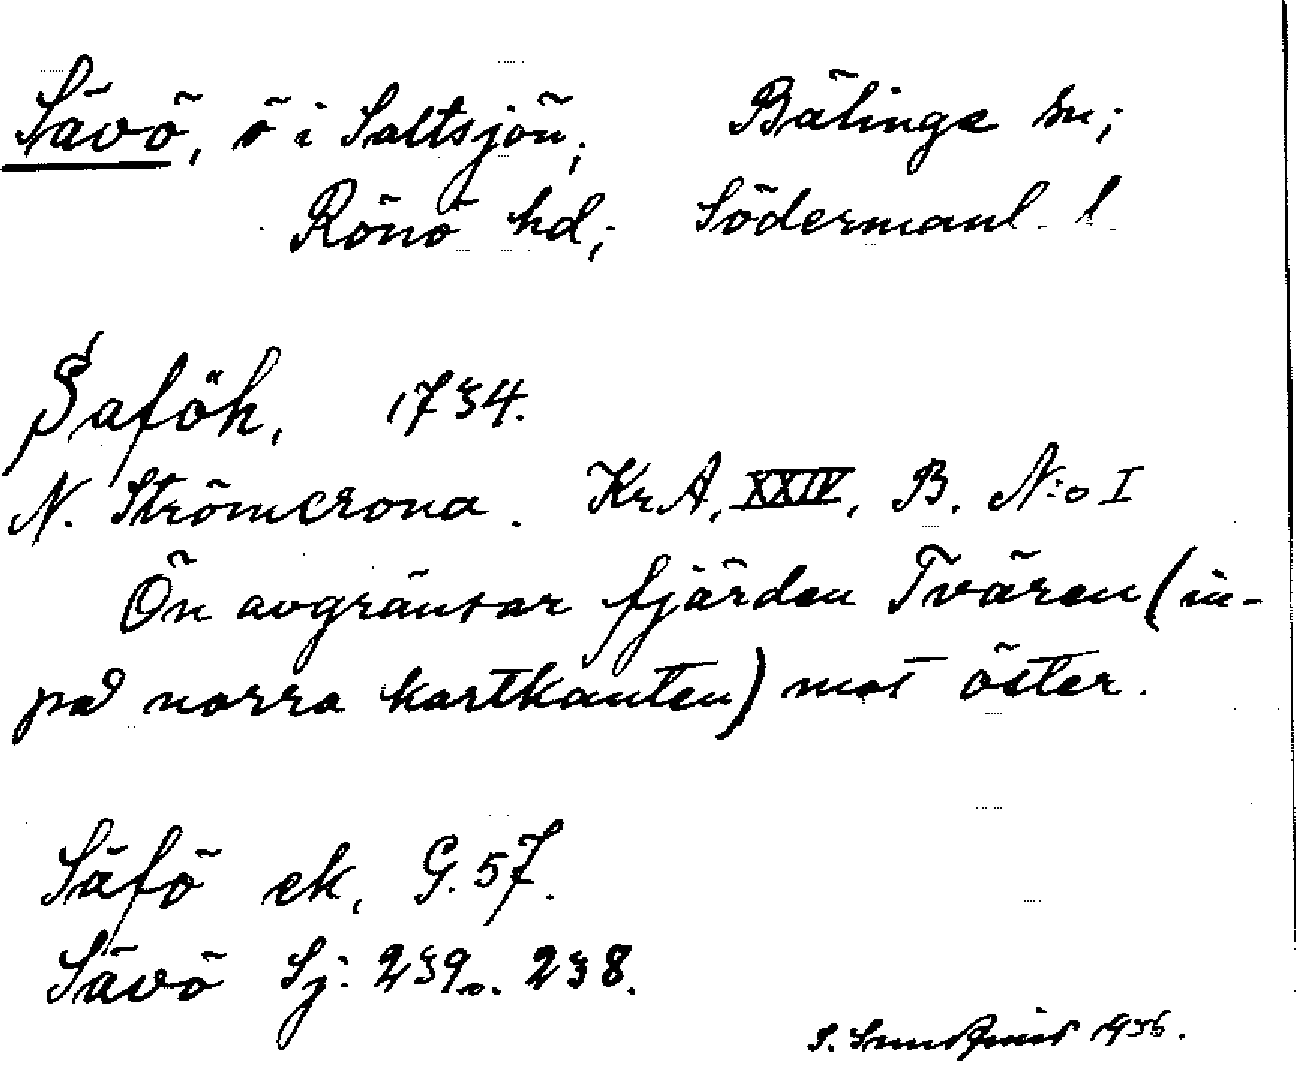 Sävö, ö i Saltsjön; Bälinge sn;
Rönö hd; Södermanl. l.
Saföh, 1734.
N. Strömcrona. Kr.A. XXIV, B. N:o I
Ön avgränsar fjärden Tvären (in-
på norra kartkanten) mot öster.
Säfö ek. G. 57.
Sävö Sj. 239 o. 238.
S. 1936.